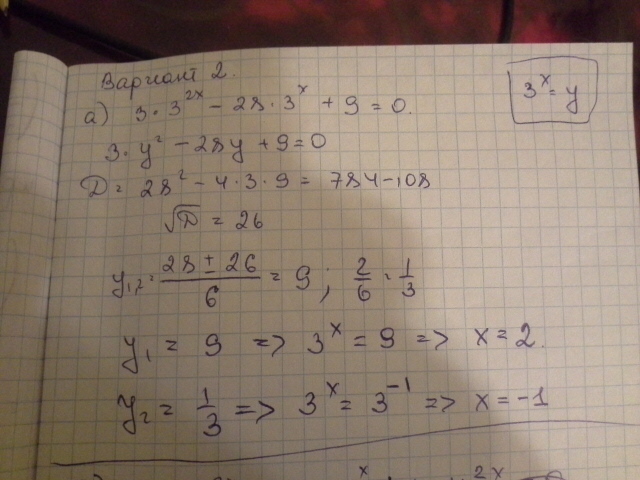 Вариант 2.
3^x = y
а) 3·3^2x − 28·3^x + 9 = 0.
3·y² − 28y + 9 = 0
D = 28² − 4·3·9 = 784 − 108
√D = 26
y₁,₂ = (28 ± 26)/6 = 9; 2/6 = 1/3
y₁ = 9 => 3^x = 9 => x = 2.
y₂ = 1/3 => 3^x = 3^−1 => x = −1